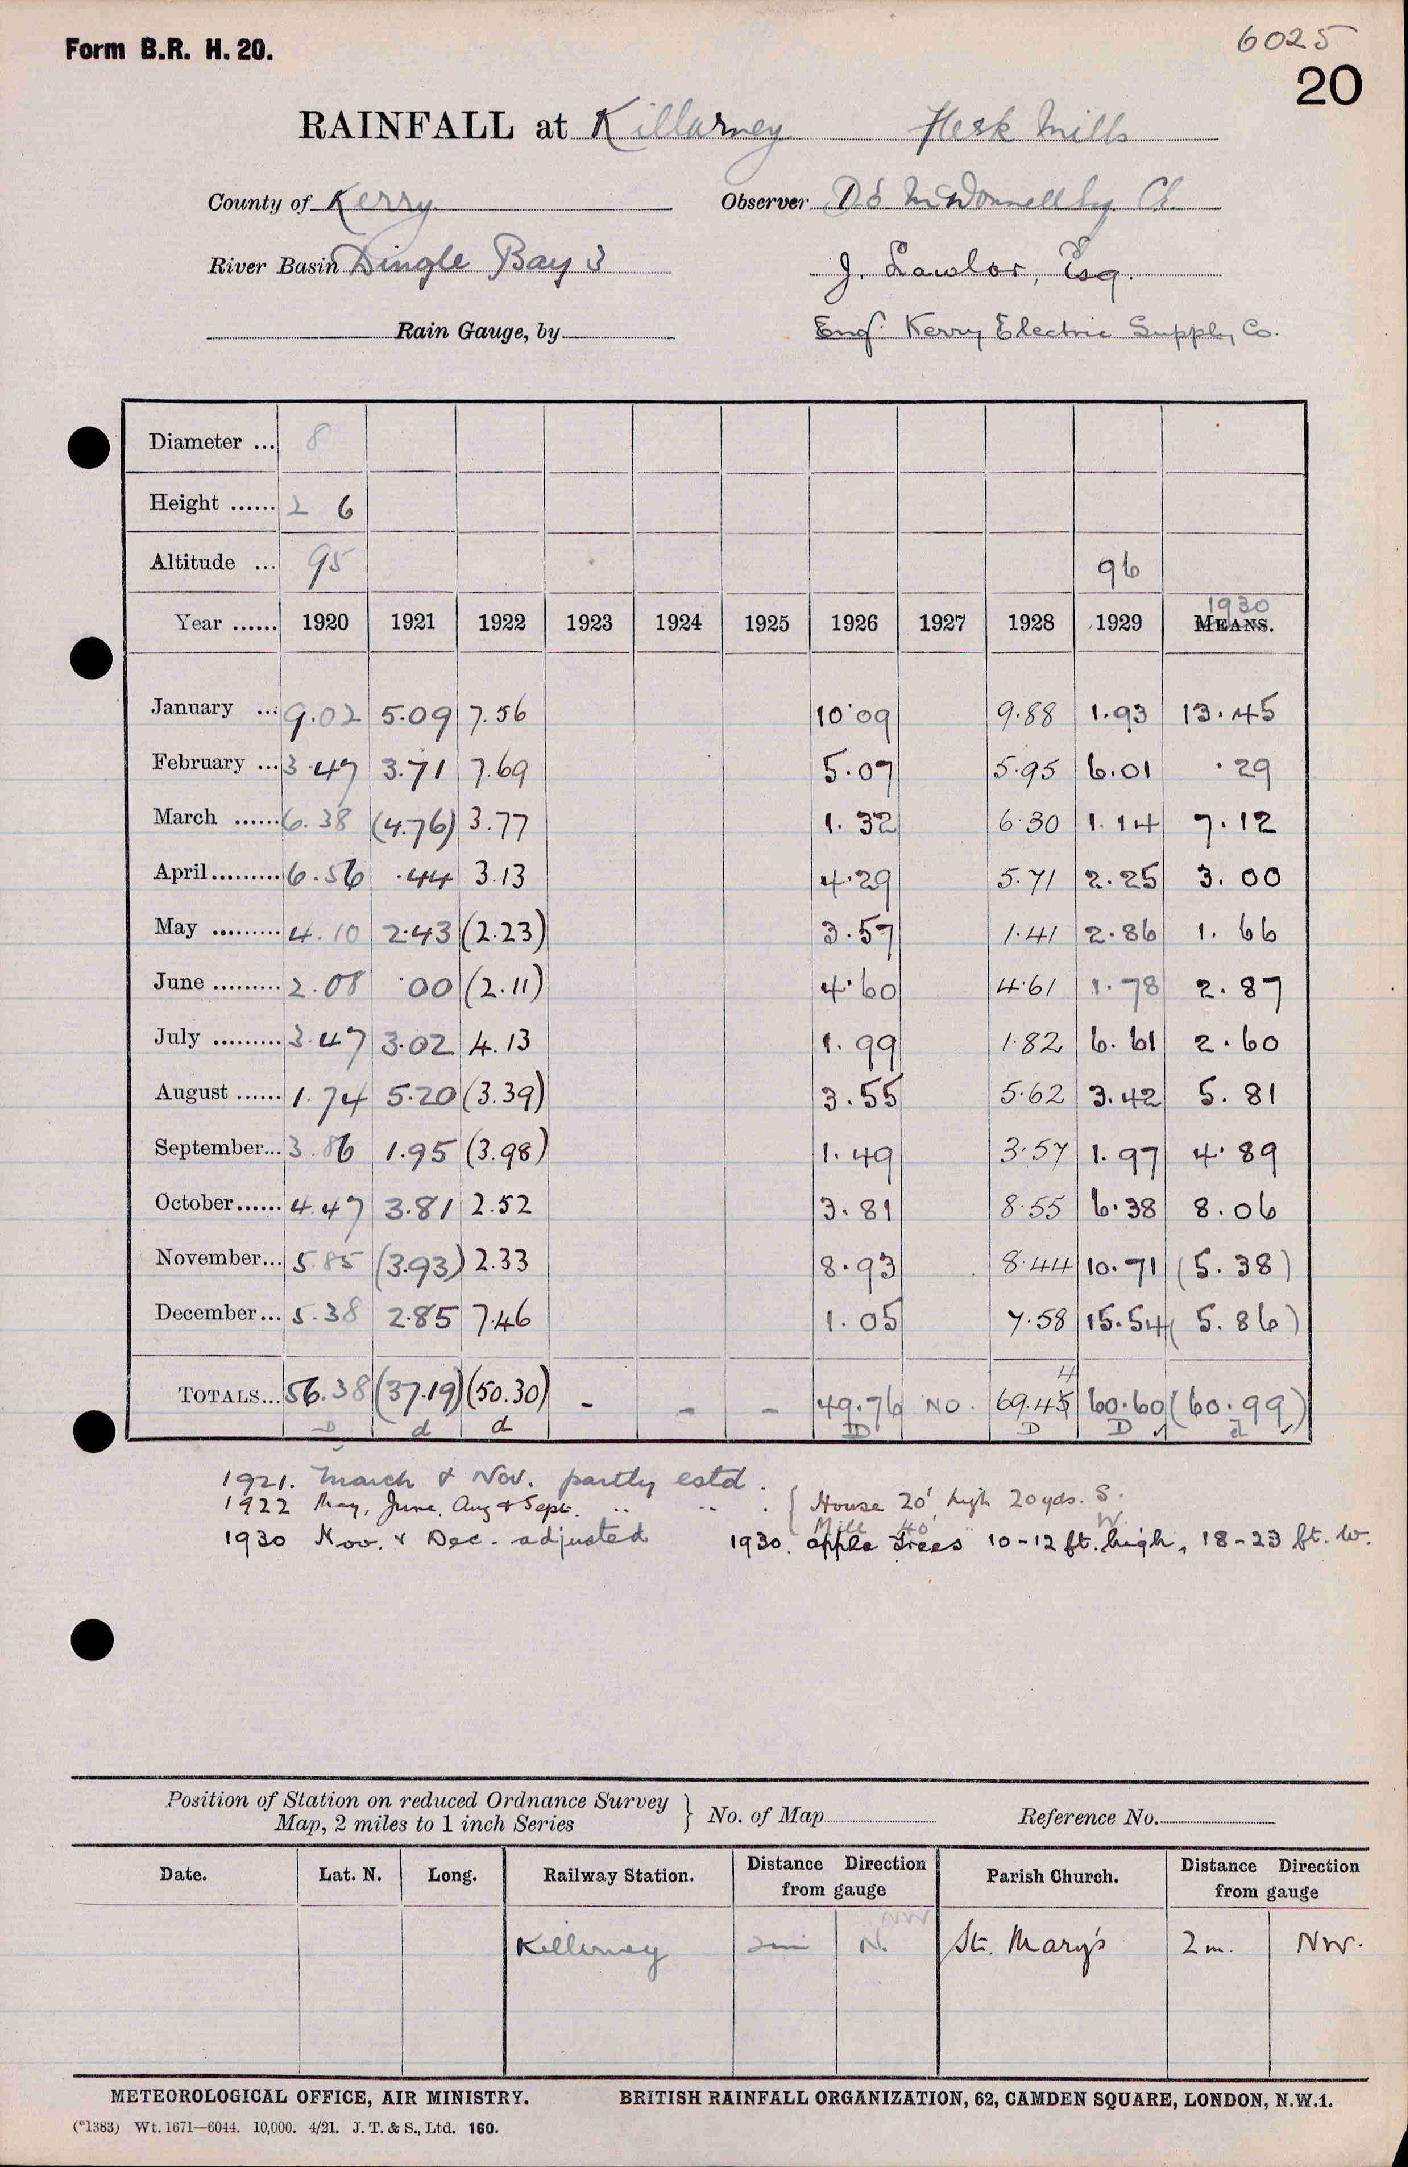 Form B.R. H. 20.
6025
20
RAINFALL at Killarney Flesk Mills
County of Kerry Observer McDonnell by
River Basin Dingle Bay 3 J. Lawlor, Esq.
Rain Gauge, by Engr Kerry Electric Supply Co.
Diameter ... 8
Height ...... 2 6
Altitude ... 95 96
1930
Year ...... 1920 1921 1922 1923 1924 1925 1926 1927 1928 1929 MEANS.
January ... 9.02 5.09 7.56 10.09 9.88 1.93 13.45
February ... 3.47 3.71 7.69 5.07 5.95 6.01 .29
March ...... 6.38 (4.76) 3.77 1.32 6.30 1.14 7.12
April ......... 6.56 .44 3.13 4.29 5.71 2.25 3.00
May ......... 4.10 2.43 (2.23) 3.57 1.41 2.86 1.66
June ......... 2.08 .00 (2.11) 4.60 4.61 1.78 2.87
July ......... 3.47 3.02 4.13 1.99 1.82 6.61 2.60
August ...... 1.74 5.20 (3.39) 3.55 5.62 3.42 5.81
September... 3.86 1.95 (3.98) 1.49 3.57 1.97 4.89
October...... 4.47 3.81 2.52 3.81 8.55 6.38 8.06
November... 5.85 (3.93) 2.33 8.93 8.44 10.71 (5.38)
December... 5.38 2.85 7.46 1.05 7.58 15.54 (5.86)
4
TOTALS... 56.38 (37.19) (50.30) - - - 49.76 NO. 69.45 60.60 (60.99)
D d d D D D d
1921. March & Nov. partly estd.
1922 May, June, Aug & Sept. .. .. . { House 20' high 20yds. S.
Mill 40' " W.
1930 Nov. & Dec. adjusted 1930. apple trees 10-12 ft. high, 18-23 ft. W.
Position of Station on reduced Ordnance Survey
Map, 2 miles to 1 inch Series } No. of Map Reference No.
Date. Lat. N. Long. Railway Station. Distance Direction from gauge Parish Church. Distance Direction from gauge
NW
Killarney 2m N. St. Mary's 2m. NW.
METEOROLOGICAL OFFICE, AIR MINISTRY. BRITISH RAINFALL ORGANIZATION, 62, CAMDEN SQUARE, LONDON, N.W.1.
(*1383) Wt. 1671—6044. 10,000. 4/21. J. T. & S., Ltd. 160.